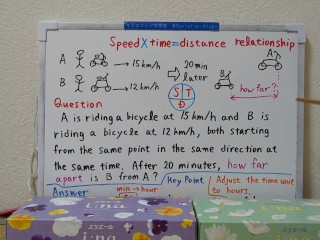 Speed × time = distance relationship
A → 15 km/h 20 min later A
B → 12 km/h B
how far?
S T
D
Question
A is riding a bicycle at 15 km/h and B is
riding a bicycle at 12 km/h, both starting
from the same point in the same direction at
the same time. After 20 minutes, how far
apart is B from A?
Key Point
Adjust the time unit
to hours.
Answer
min → hour
エリエール
i:na
エリエール
i:na